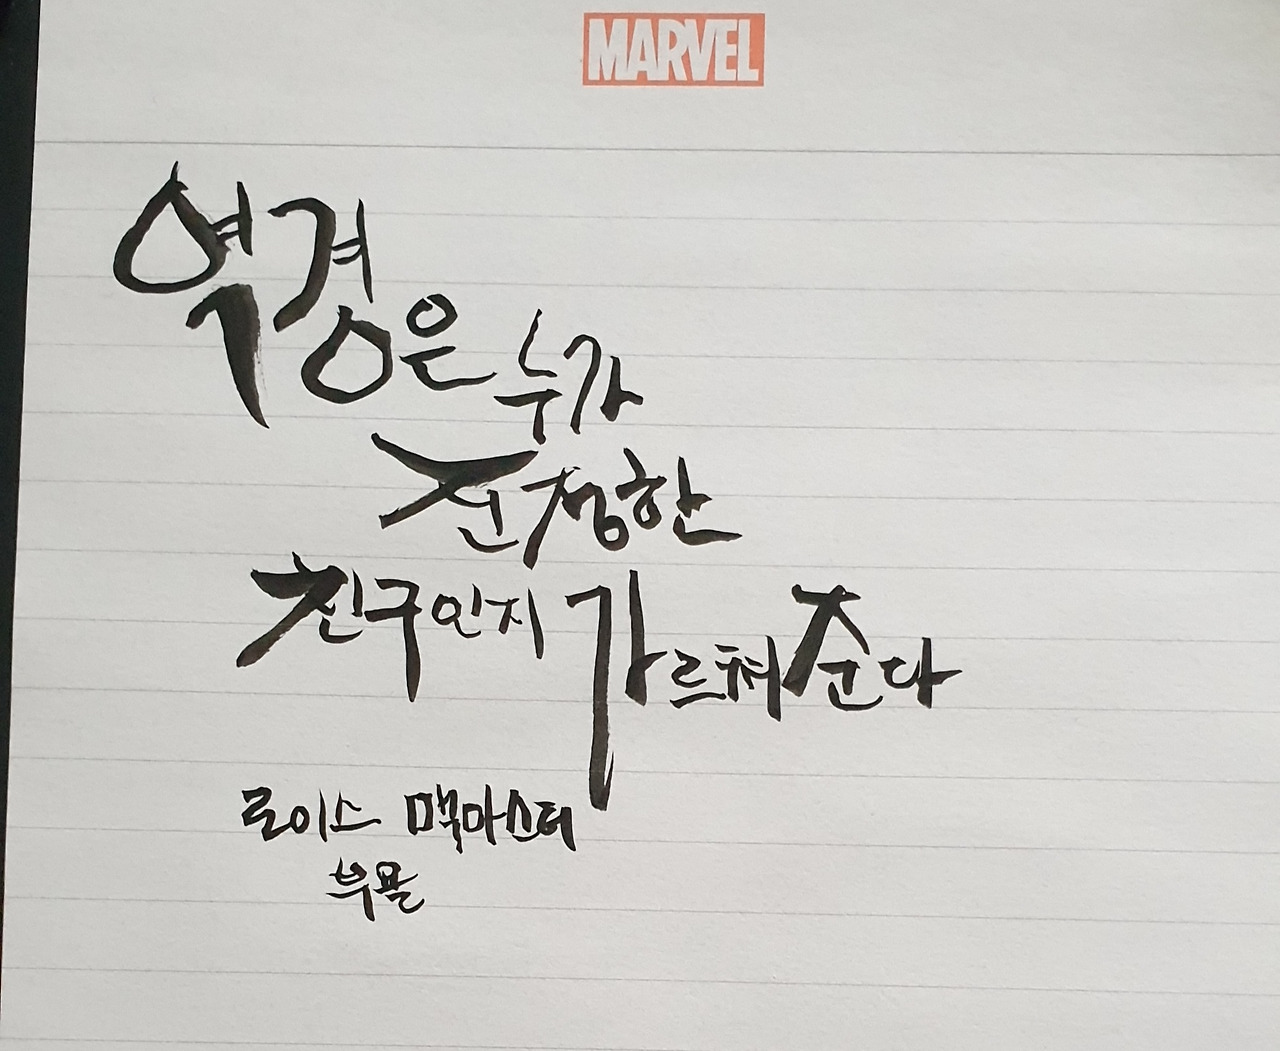 MARVEL
역경은 누가
진정한
친구인지 가르쳐준다
로이스 맥마스터
부욜